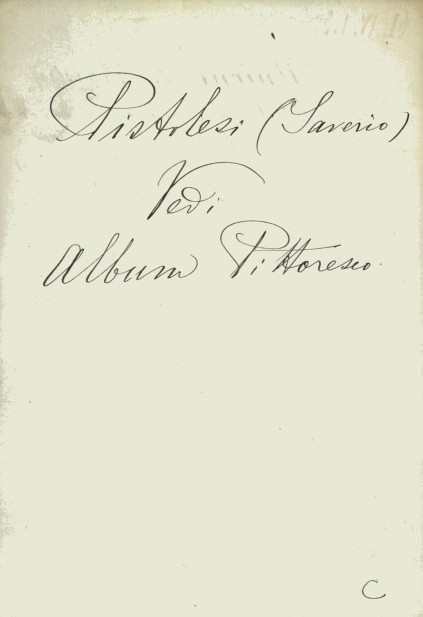 Pistolesi (Saverio)
Vedi
Album Pittoresco.
C